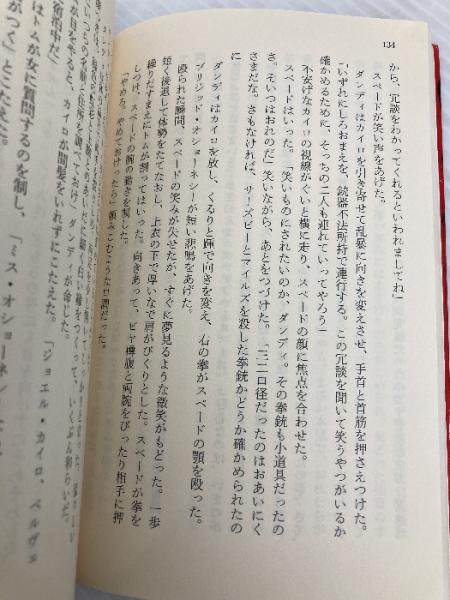 134
から、冗談をわかってくれるといわれましてね」
スペードが笑い声をあげた。
ダンディはカイロを引き寄せて乱暴に向きを変えさせ、手首と首筋を押さえつけた。
「いずれにしろおまえを、銃器不法所持で連行する。この冗談を聞いて笑うやつがいるか
確かめるために、そっちの二人も連れていってやろう」
不安げなカイロの視線がぐいと横に走り、スペードの顔に焦点を合わせた。
スペードはいった。「笑いものにされたいのか、ダンディ。その拳銃も小道具だったの
さ。そいつはおれのだ」笑いながら、あとをつづけた。「三二口径だったのはおあいにく
さまだな。さもなければ、サーズビーとマイルズを殺した拳銃かどうか確かめられたの
に」
ダンディはカイロを放し、くるりと踵で向きを変え、右の拳がスペードの顎を殴った。
ブリジッド・オショーネシーが短い悲鳴をあげた。
殴られた瞬間、スペードの笑みが失せたが、すぐに夢見るような微笑がもどった。一歩
短く後退して体勢をたてなおし、上衣の下で厚いなで肩がぴくりとした。スペードが拳を
繰りだすまえにトムが割ってはいった。向きあって、ビヤ樽腹と両腕をぴったり相手に押
しつけ、スペードの腕の動きを制した。
「やめろ。やめておけったら」頼みこむような口調だった。
な目をやると、カイロが間髪をいれずにこたえた。「ジョエル・カイロ、ベルヴェ
宿泊中だ」
はトムが女に質問するのを制し、「ミス・オショーネ
がつく」とこたえた。